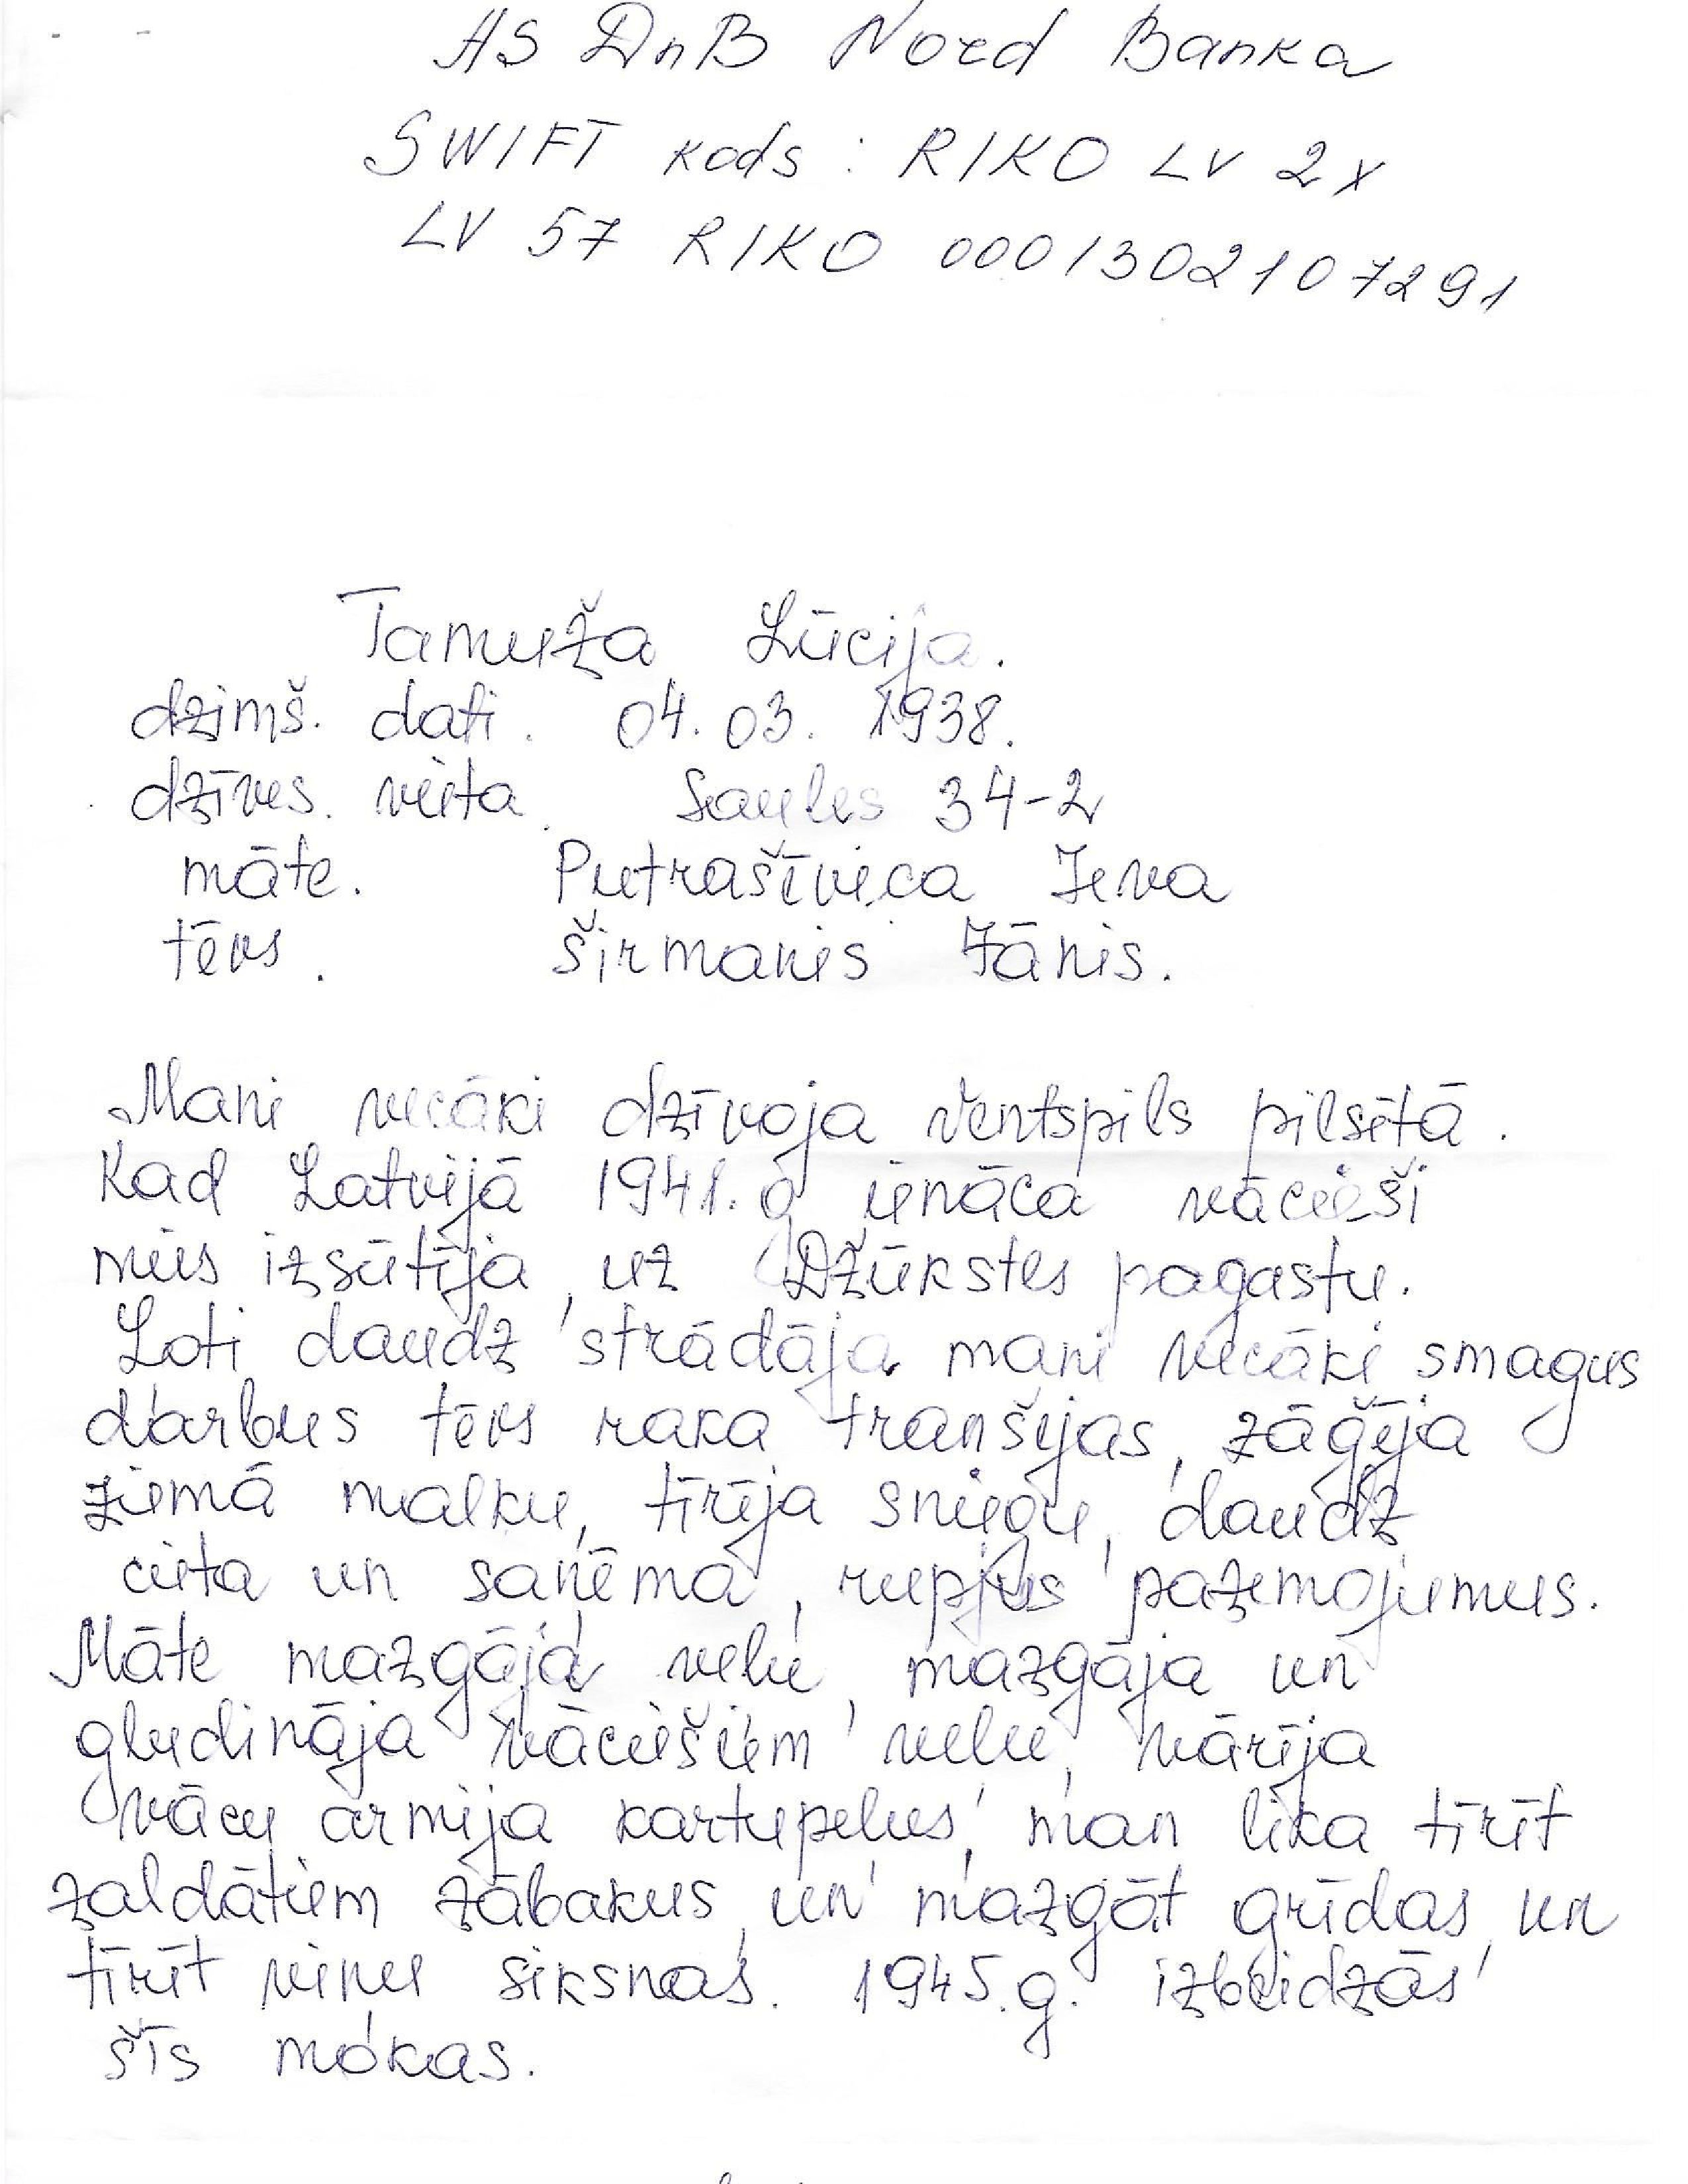 AS DnB Nord Banka
SWIFT kods : RIKO LV 2X
LV 57 RIKO 0001302107291
Tamuža Lūcija.
dzimš. dati. 04. 03. 1938.
dzīves. vieta. Saules 34-2
māte. Putrašēvica Ieva
tēvs. Širmanis Jānis.
Mani vecāki dzīvoja Ventspils pilsētā.
Kad Latvijā 1941. g ienāca vācieši
mūs izsūtīja uz Džūkstes pagastu.
Ļoti daudz strādāja mani vecāki smagus
darbus tēvs raka tranšejas, zāģēja
ziemā malku, tīrīja sniegu, daudz
cieta un saņēma, rupjus pazemojumus.
Māte mazgāja veļu, mazgāja un
gludināja vāciešiem veļu, vārīja
vācu armija kartupeļus, man lika tīrīt
zaldātiem zābakus, un mazgāt grīdas, un
tīrīt viņu siksnas. 1945. g. izbeidzās
šīs mokas.